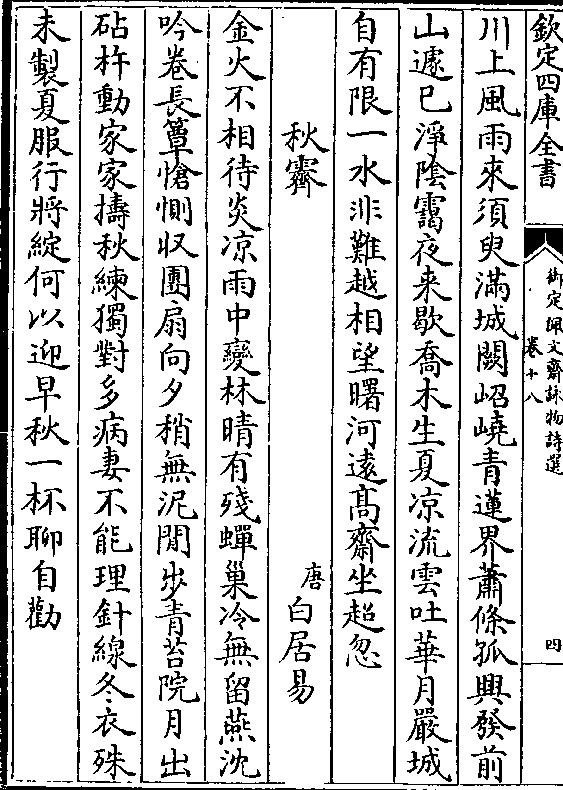 欽定四庫全書
御定佩文齋詠物詩選
卷十八
四
川上風雨來須臾滿城闕岧嶢青蓮界蕭條孤興發前
山遽已淨陰靄夜来歇喬木生夏凉流雲吐華月嚴城
自有限一水非難越相望曙河遠高齋坐超忽
秋霽
唐白居易
金火不相待炎凉雨中變林晴有殘蟬巢冷無留燕沈
吟卷長簟愴惻收團扇向夕稍無泥閒步青苔院月出
砧杵動家家擣秋練獨對多病妻不能理針線冬衣殊
未製夏服行將綻何以迎早秋一杯聊自勸